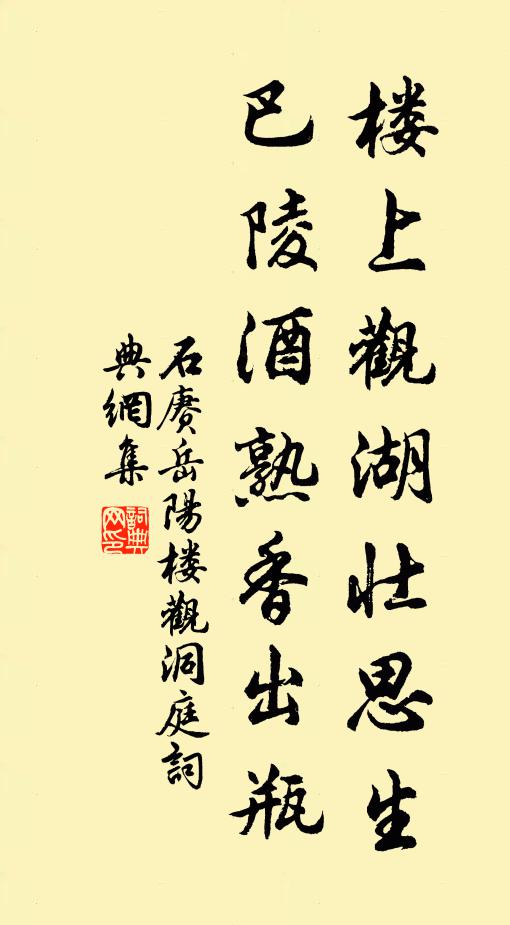 楼上觀湖壮思生
巴陵酒熟香出瓶
石賡岳陽楼觀洞庭詞
典網集
詞典
网印